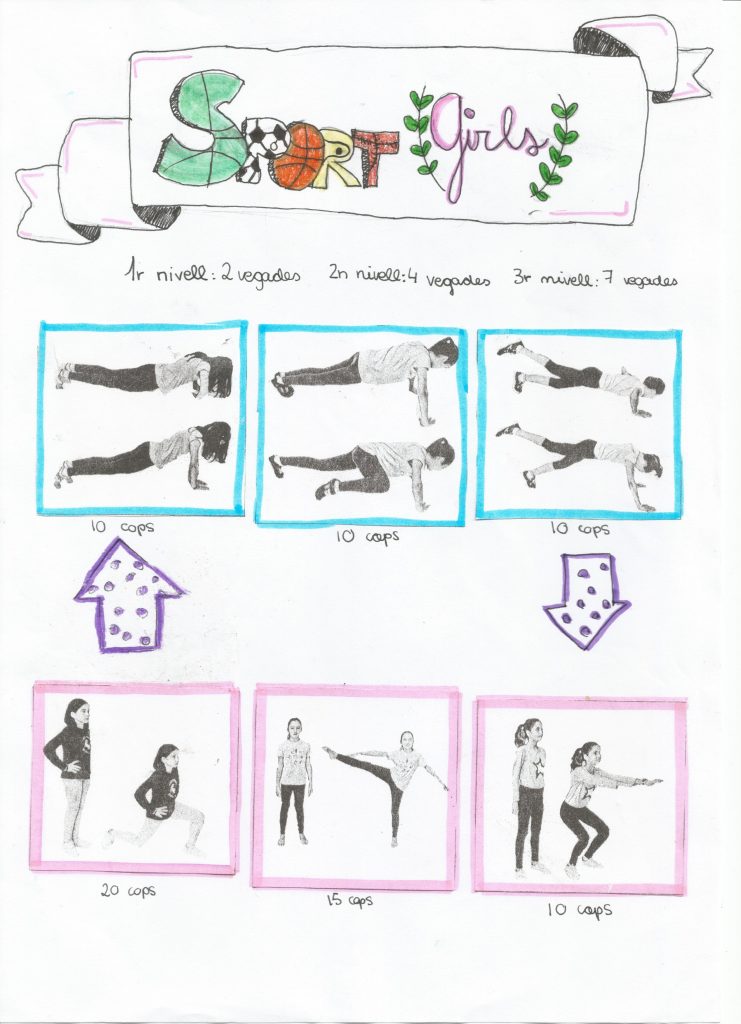 SPORT Girls
1r nivell: 2 vegades 2n nivell: 4 vegades 3r nivell: 7 vegades
10 cops 10 cops 10 cops
20 cops 15 cops 10 cops